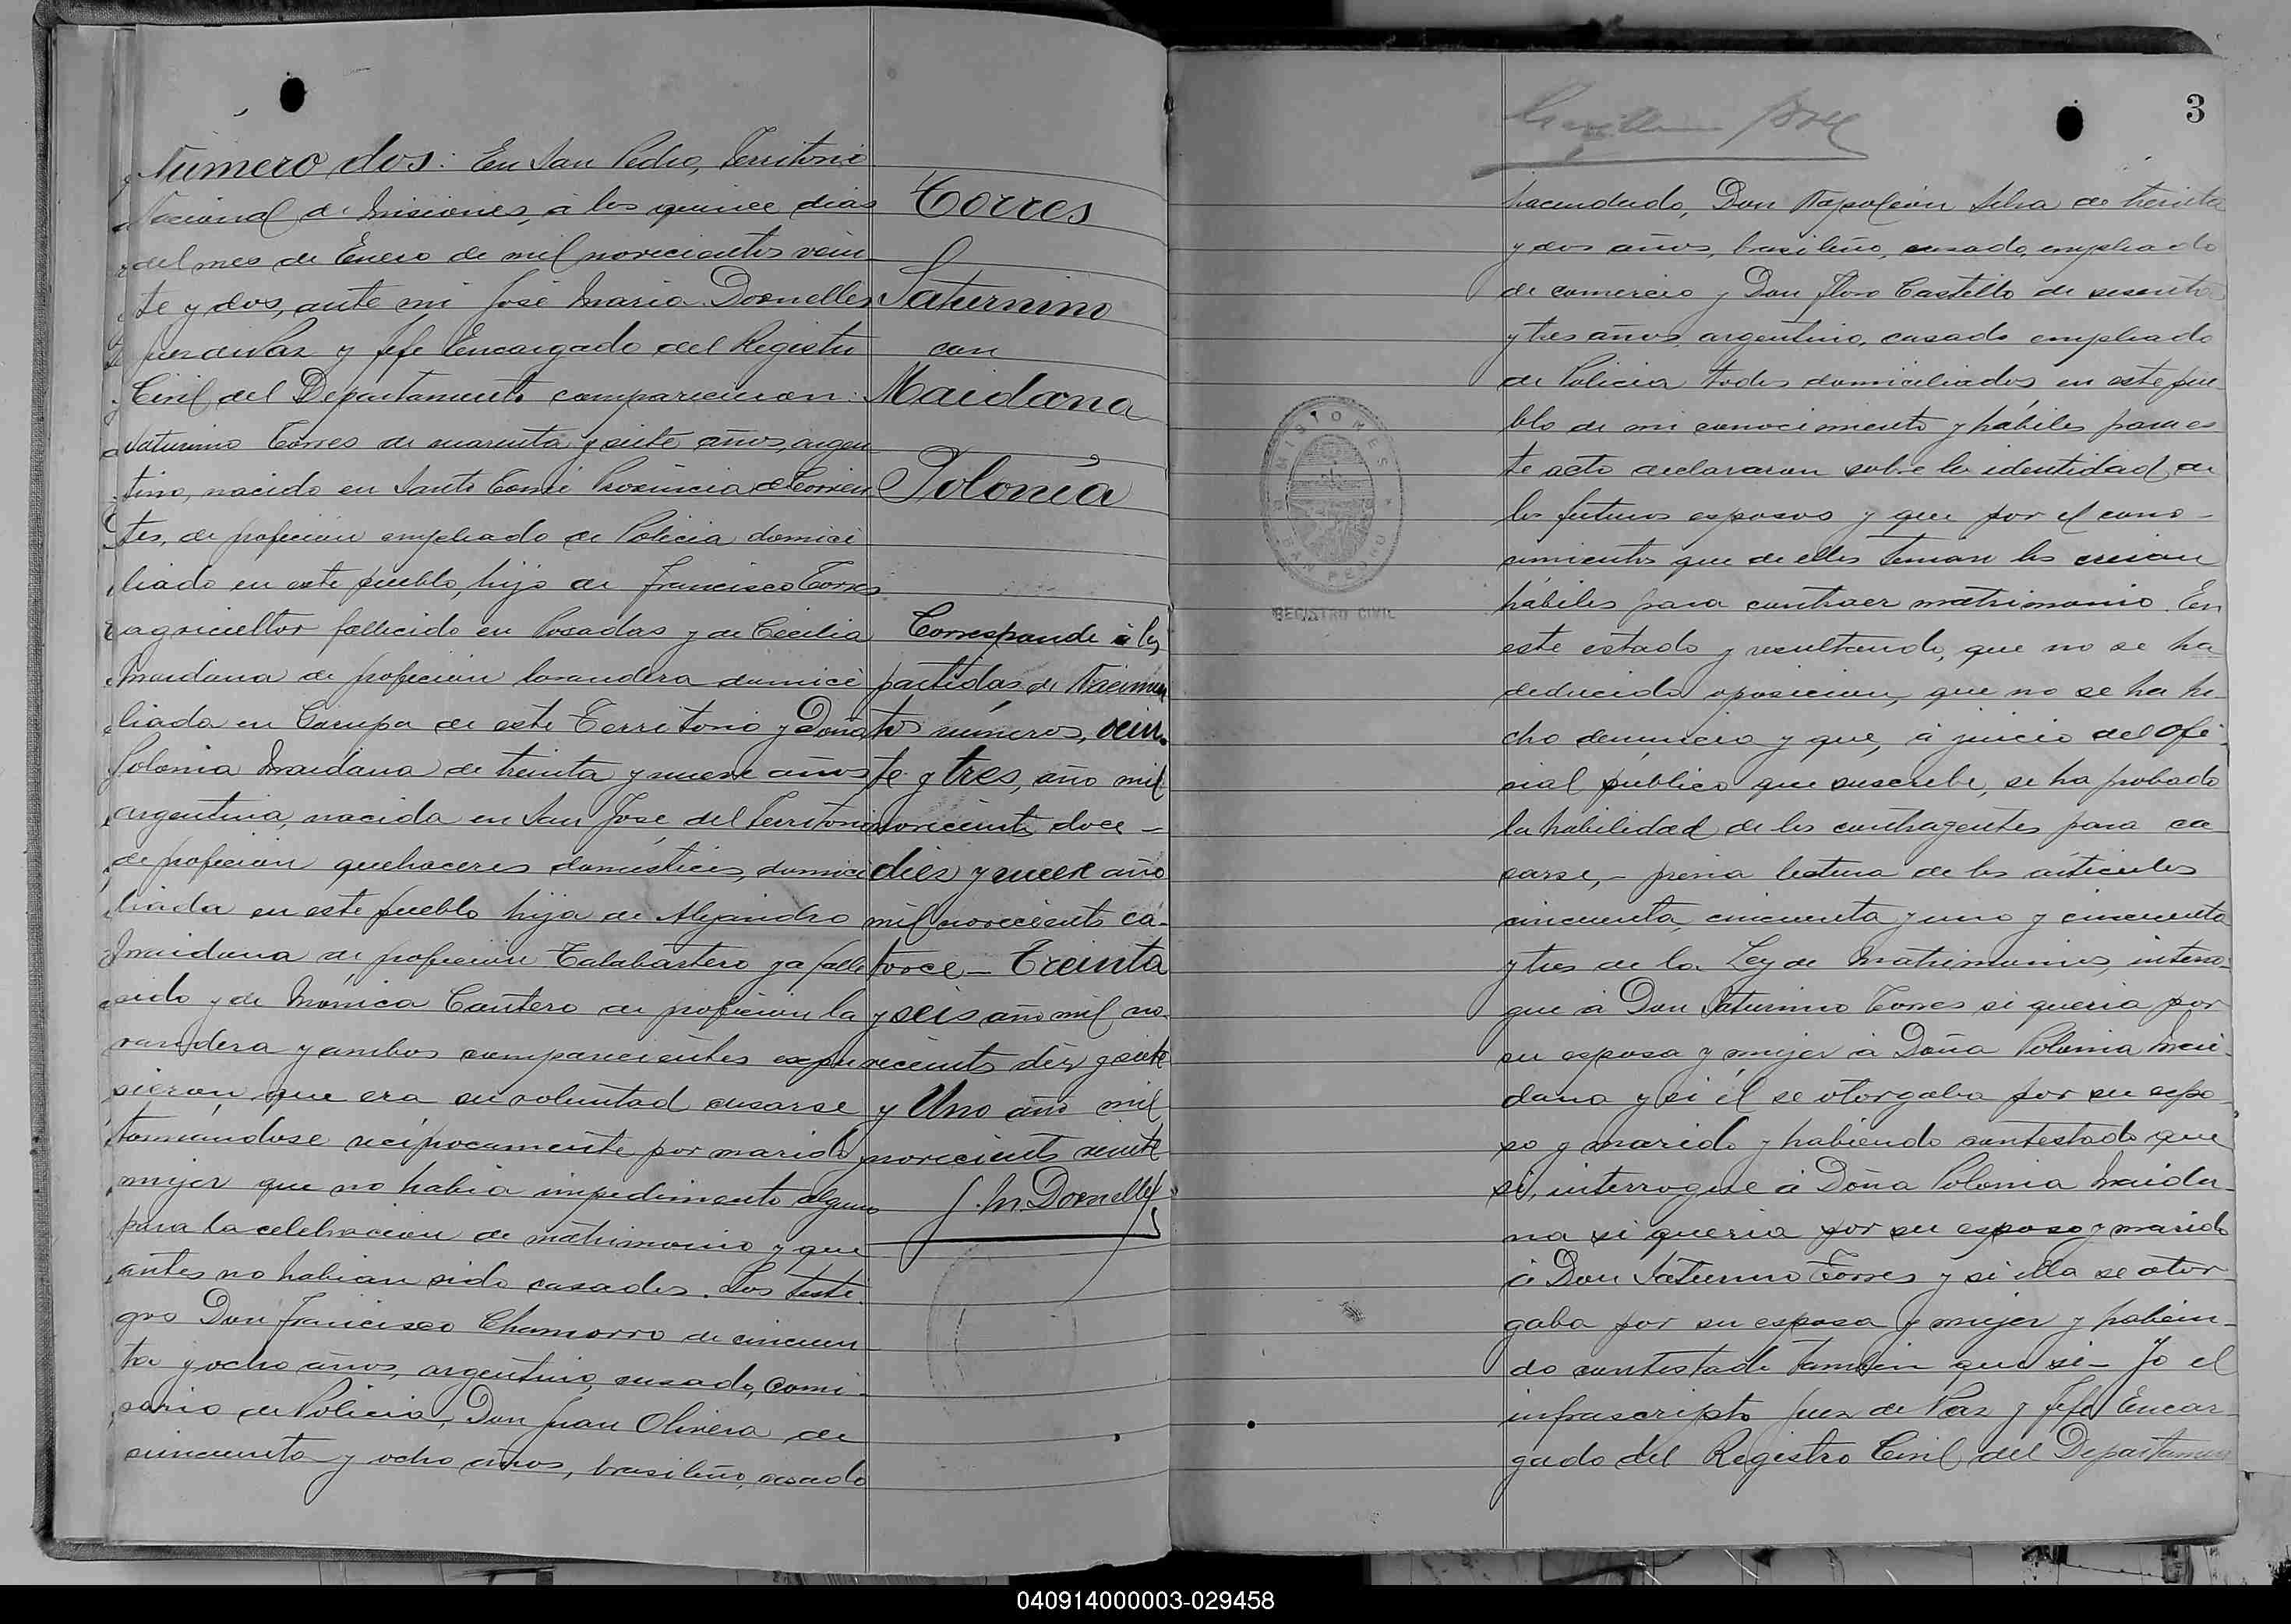 Número dos: En San Pedro, Territorio
Nacional de Misiones, à los quince dias
del mes de Enero de mil novecientos vein
te y dos, ante mi José Maria Dornelles
Juez de Paz y Jefe Encargado del Registro
Civil del Departamento comparecieron:
Saturnino Torres de cuarenta y siete años, argen
tino, nacido en Santo Tomé Provincia de Corrien
tes, de profecion empleado de Policia domici
liado en este pueblo, hijo de Francisco Torres
agricultor fallicido en Posadas y de Cecilia
Maidana de profecion lavandera domici
liada en Garupa de este Territorio y Doña
Polonia Maidana de treinta y nueve años
argentina, nacida en San José del Territorio
de profecion quehaceres domésticos, domici
liada en este pueblo hija de Alejandro
Maidana de profecion Talabartero ya falle
cido y de Mónica Cantero de profecion la
vandera y ambos comparecientes expu
sieron que era su voluntad casarse
tomandose reciprocamente por marido y
mujer que no habia impedimento alguno
para la celebracion de matrimonio y que
antes no habian sido casados. Los testi
gos Don Francisco Chamorro de cincuen
ta y ocho años, argentino, casado, comi-
sario de Policia, Don Juan Olivera de
cincuenta y ocho años, brasileño, casado
Torres
Saturnino
con
Maidana
Polonia
Corresponde à las
partidas de Nacimien
tos números, vein-
te y tres, año mil
novecientos doce -
diez y nueve año
mil novecientos ca-
torce - Treinta
y seis año mil no-
vecientos diez y siete
y Uno año mil
novecientos veinte
J. M. Dornelles
3
hacendado, Don Napoleón Silva de treinta
y dos años, brasileño, casado, empleado
de comercio y Don Floro Castillo de sesenta
y tres años argentino, casado empleado
de Policia todos domiciliados en este pue
blo de mi conocimiento y hábiles para es
te acto declararon sobre la identidad de
los futuros esposos y que por el cono-
cimientos que de ellos tenian los creian
hábiles para contraer matrimonio. En
este estado y resultando, que no se ha
deducido oposicion, que no se ha he
cho denuncia y que, à juicio del ofi-
cial público que suscribe, se ha probado
la habilidad de los contragentes para ca
sarse, - previa lectura de los artículos
cincuenta, cincuenta y uno y cincuenta
y tres de la Ley de Matrimonios, interro-
gue à Don Saturnino Torres si queria por
su esposa y mujer à Doña Polonia Mai-
dana y si él se otorgaba por su espo
so y marido y habiendo contestado que
si, interrogue à Doña Polonia Maida-
na si queria por su esposo y marido
à Don Saturnino Torres y si ella se otor-
gaba por su esposa y mujer y habien-
do contestado tambien que si - Yo el
infrascripto Juez de Paz y Jefe Encar-
gado del Registro Civil del Departamen
MISIONES
SAN PEDRO
REGISTRO CIVIL
040914000003-029458